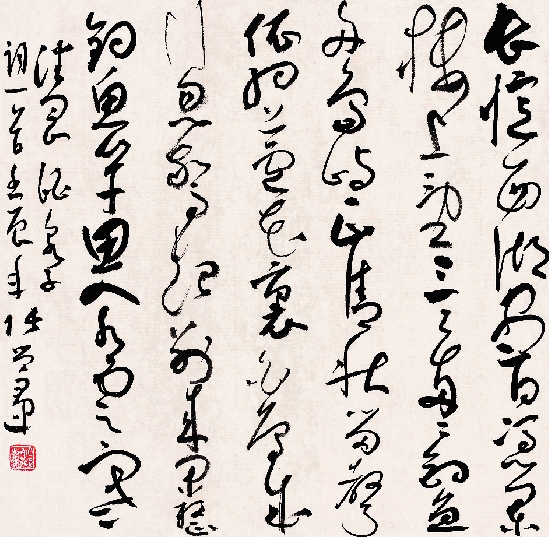 长憶西湖尽日憑阑
楼上望三三两两钓鱼
舟島嶼正清秋笛聲
依约芦花裏白鸟成
行忽惊起别来闲整
钓鱼竿思入水雲寒
潘阆酒泉子
詞一首壬辰年任